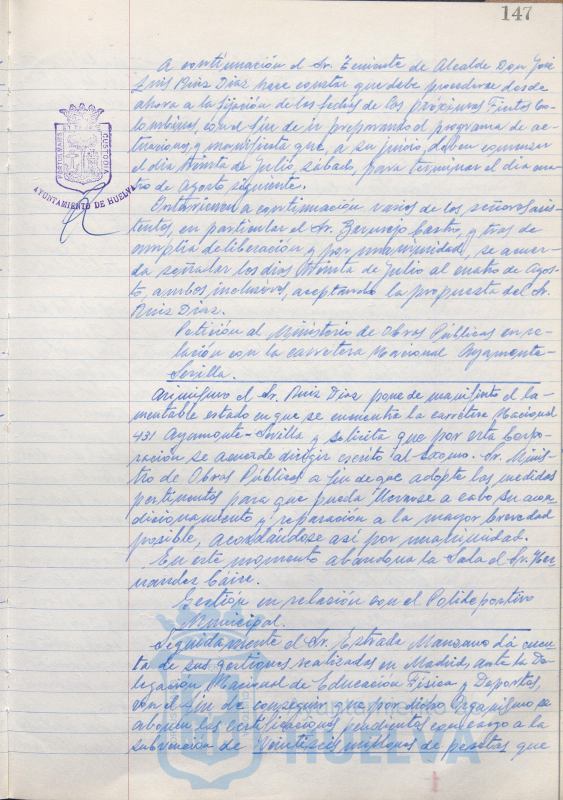 147
A continuación el Sr. Teniente de Alcalde Don José
Luis Ruiz Díaz hace constar que debe procederse desde
ahora a la fijación de las fechas de las próximas Fiestas Co-
lombinas, con el fin de ir preparando el programa de ac-
tuaciones, y manifiesta que, a su juicio, deben comenzar
el día treinta de Julio, sábado, para terminar el día cua-
tro de Agosto siguiente.
Intervienen a continuación varios de los señores asis-
tentes, en particular el Sr. Bermejo Castro, y tras de
amplia deliberación y por unanimidad, se acuer-
da señalar los días treinta de Julio al cuatro de Agos-
to, ambos inclusives, aceptando la propuesta del Sr.
Ruiz Díaz.
Petición al Ministerio de Obras Públicas en re-
lación con la carretera Nacional Ayamonte-
Sevilla.
Asimismo el Sr. Ruiz Díaz pone de manifiesto el la-
mentable estado en que se encuentra la carretera Nacional
431 Ayamonte-Sevilla y solicita que por esta Corpo-
ración se acuerde dirigir escrito al Excmo. Sr. Minis-
tro de Obras Públicas a fin de que adopte las medidas
pertinentes para que pueda llevarse a cabo su acon-
dicionamiento y reparación a la mayor brevedad
posible, acordándose así por unanimidad.
En este momento abandona la Sala el Sr. Her-
nández
Gestión en relación con el Polideportivo
Municipal.
Seguidamente el Sr. Estrada Manzano dá cuen-
ta de sus gestiones realizadas en Madrid, ante la De-
legación Nacional de Educación Física y Deportes,
con el fin de conseguir que por dicho Organismo se
abonen las certificaciones pendientes con cargo a la
subvención de veintiseis millones de pesetas que
PORTUS MARIS CUSTODIA
AYUNTAMIENTO DE HUELVA
HUELVA